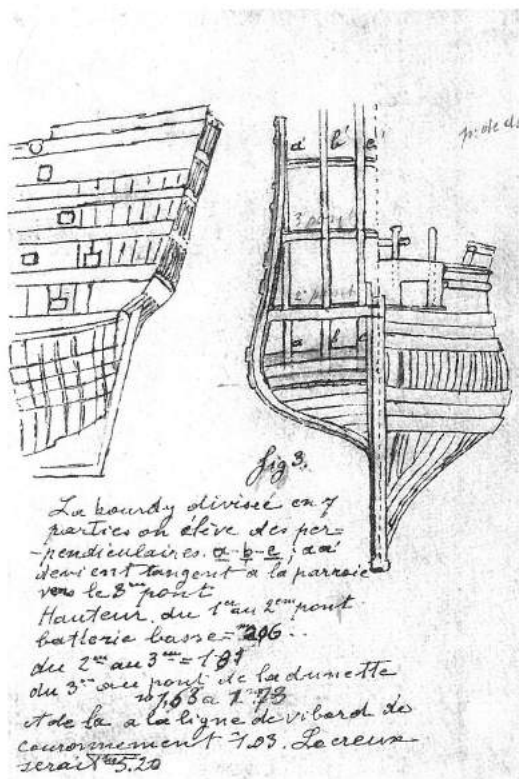 a' b' c'
3e pont
2e pont
a b c
fig 3.
La bourdy divisée en 7
parties on élève des per=
-pendiculaires. a-b-c; aa'
devient tangent à la parroie
vers le 3me pont
Hauteur du 1er au 2eme pont
batterie basse = 
du 2me au 3eme = 1.81
du 3me au pont de la dunette
1.68 a 1.73
et de la a la ligne de vibord de
couronnement 1.03. Le creux
serait 5.20